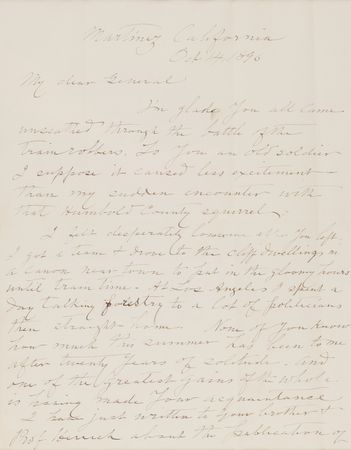 Martinez California
Oct 14, 1896
My dear General
I'm glad you all came
unscathed through the battle of the
train robbers. To you an old soldier
I suppose it caused less excitement
than my sudden encounter with
that Humbold County squirrel.
I felt desperately lonesome after you left
I got a team & drove to the cliff dwellings in
a canon near town to put in the gloomy hours
until train time. At Los Angeles I spent a
day talking forestry to a lot of politicians
then straight home. None of you know
how much this summer has been to me
after twenty years of solitude. And
one of the greatest gains of the whole
is having made your acquaintance
I have just written to your brother &
Prof about the publication of